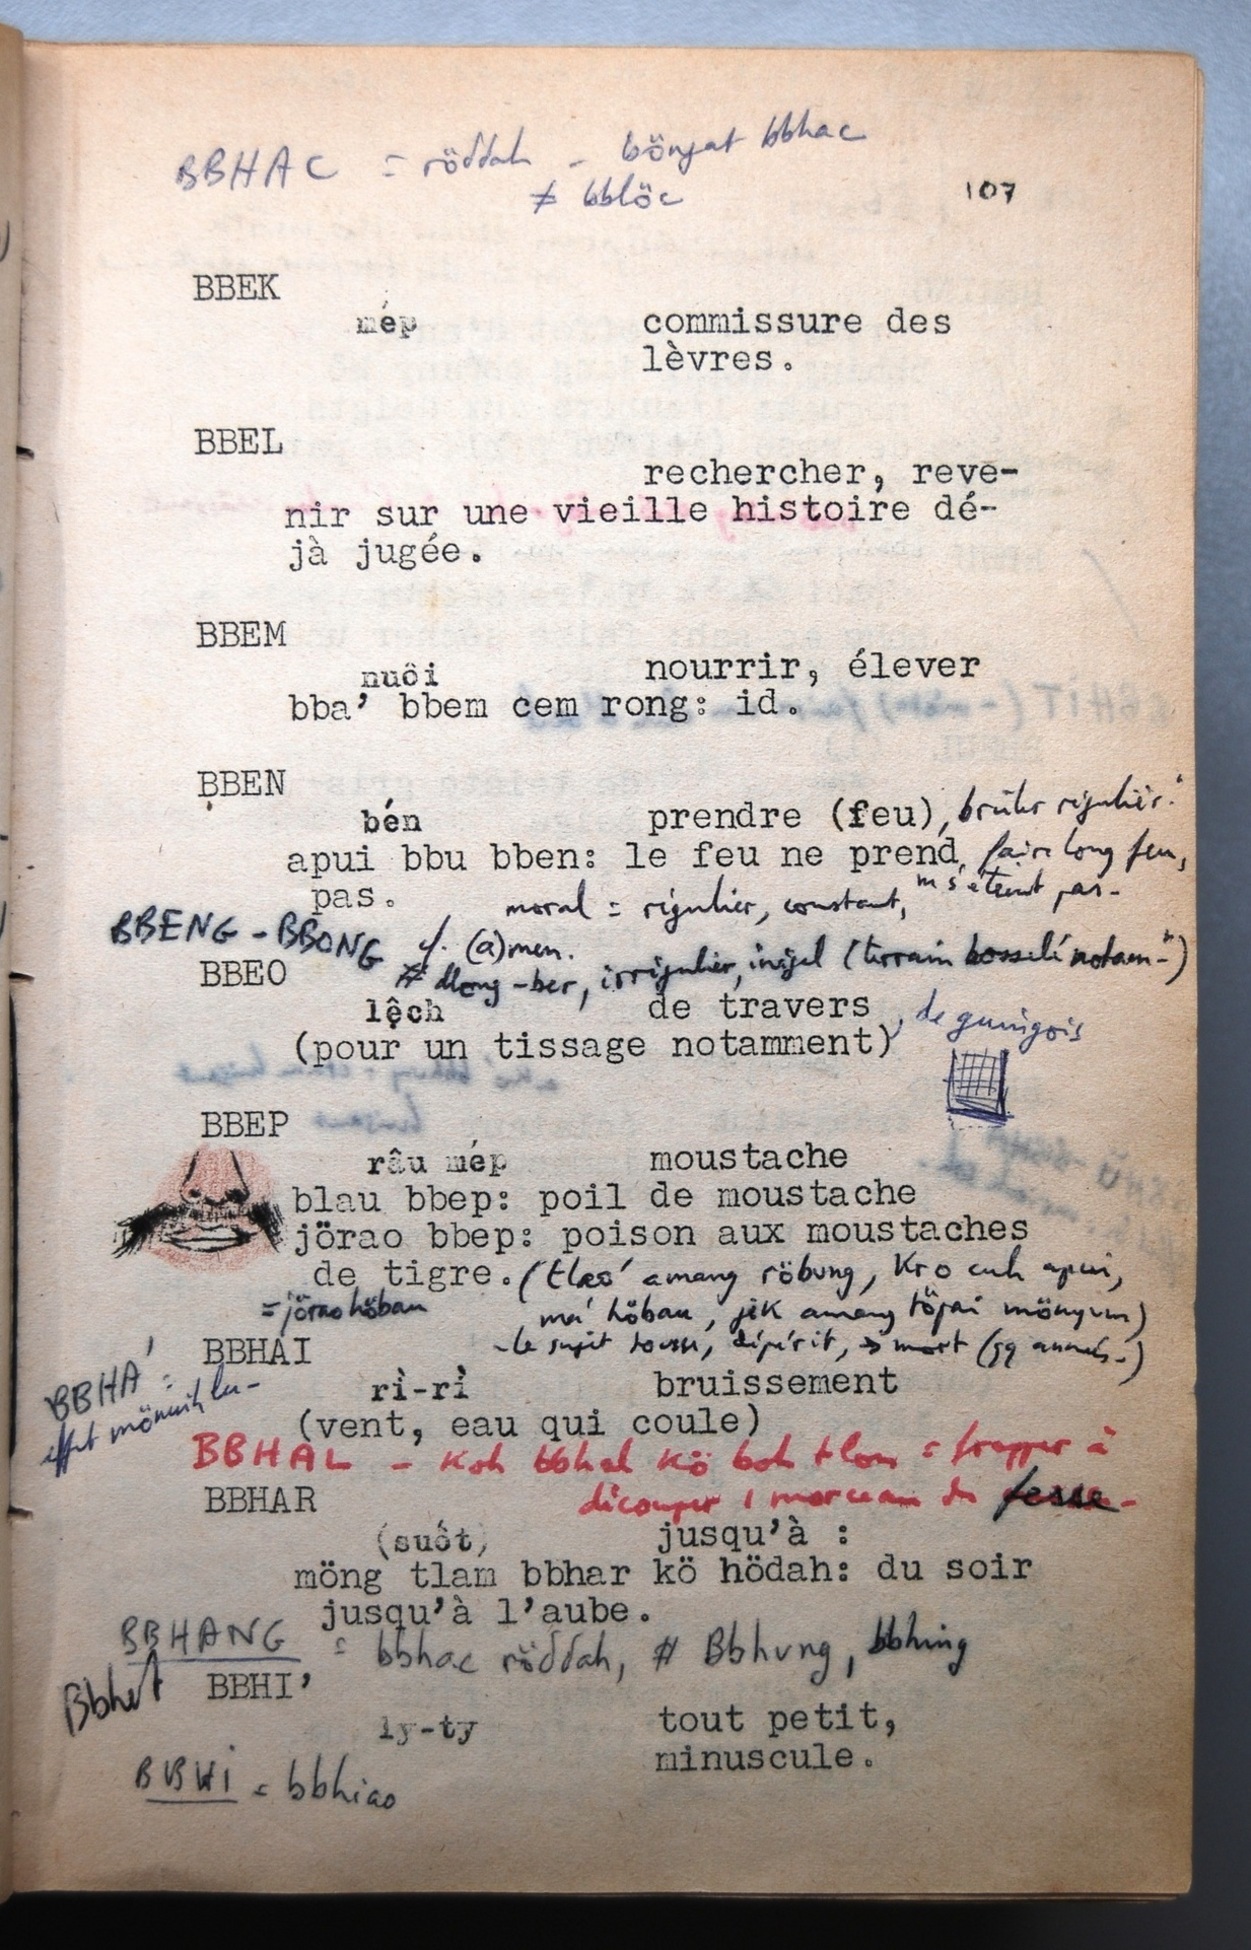 BBHAC = röddah - böngat bbhac
≠ bblöc
107
BBEK
mép commissure des
lèvres.
BBEL
rechercher, reve-
nir sur une vieille histoire dé-
jà jugée.
BBEM
nuôi nourrir, élever
bba’ bbem cem rong: id.
BBEN
bén prendre (feu), brûler régulièr.t
apui bbu bben: le feu ne prend faire long feu,
pas. moral = régulier, constant, m s'éteint pas-
BBENG - BBONG cf. (a)men.
≠ dlong-ber, irrégulier, inégal (terrain bosselé notam-t)
BBEO
lệch de travers, de guingois
(pour un tissage notamment)
BBEP
râu mép moustache
blau bbep: poil de moustache
jörao bbep: poison aux moustaches
de tigre. (tlao' amang röbung, kro cuh apui,
= jörao höbau ma' höbau, jik amang töpai mönyum)
- le sujet tousse, dépérit, → mort (qq années-)
BBHAI
BBHA' =
ri-ri bruissement
(vent, eau qui coule)
BBHAL - koh bbhal kö boh tlon = frapper à
découper 1 morceau de fesse-
BBHAR
(suốt) jusqu’à :
möng tlam bbhar kö hödah: du soir
jusqu’à l’aube.
BBHANG = bbhac röddah, # Bbhung, bbhing
Bbhet
BBHI’
ly-ty tout petit,
minuscule.
BBHI = bbhiao